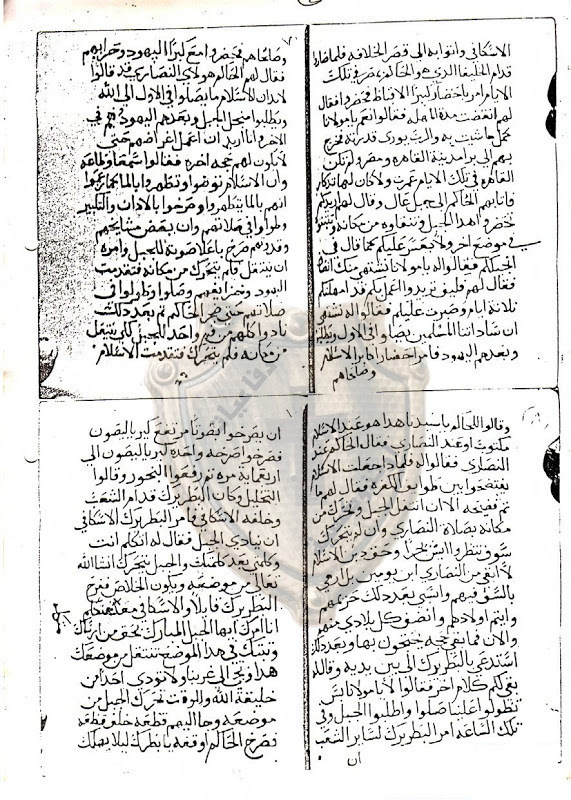 الاسكافي وانوابه الى قصر الخلافه فلما صار
قدام الخليفه الحاكم في تلك
الايام امر باحضار كبرا الاقباط فحضروا فقال
لهم انقضت مدة المهله فقالوا نعم يا مولانا
كمل ما شيت به والرب يورى قدرته فخرج
بهم الى برا مدينة القاهره ومصر ولم تلك
القاهره في تلك الايام عمرت ولا كان لها تدكار
فاتا بهم الحاكم الى جبل عال وقال لهم اريدكم
تحضروا هدا الجبل وتنقلوه من مكانه
في موضع اخر ولا يعسر عليكم كما قال في
انجيلكم فقالوا له يا مولانا نشتهي منك
فقال لهم فليف تريدوا العمل بكم قد امهلتكم
تلاتة ايام وصرت عليكم فقالوا له نشتهي
ان ساداتنا المسلمين يصلوا في الاول ويطلبوا
وبعدهم اليهود فامر باحضار اكابر الاسلام
وصلحاهم
وصلحاهم فحضروا مع كبرا اليهود وخزايهم
فقال لهم الحاكم هولاي النصارى قد قالوا
لابد ان الاسلام ما يصلوا في الاول الى الله
ويطلبوا منه الجبل وبعدهم اليهود وهم في
الاخر وانا اريد ان اعمل اغراضهم حتى
لا يكون لهم حجه اخره فقالوا سمعا وطاعه
وان الاسلام توضوا وتطهروا بالما
انهم بالما يتطهروا وصرخوا بالادان والتكبير
وطولوا في صلاتهم وان بعض مشايخهم
صرخ باعلا صوته للجبل وامره
ان ينتقل فلم يتحرك من مكانه فتقدمت
اليهود وخزايهم وصلوا وطولوا في
صلاتهم حتى ضجر الحاكم ثم بعد دلك
نادوا كلهم من فم واحد للجبل لكي ينتقل
من مكانه فلم يتحرك فتقدمت الاسلام
وقالوا للحاكم يا سيدنا هدا هو عند الاسلام
مكتوب او عند النصارى فقال الحاكم عند
النصارى فقالوا له فلمادا جعلت الاسلام
يفتضحوا بين طوايف الكفره فقال لهم ما
تم فضيحه الا ان انتقل الجبل وتحرك من
مكانه بصلاة النصارى وان لم يتحرك
سوف تنظروا ايش يجرا وحق دين الاسلام
لا ابقي من النصارى ابن يومين بل ارمي
بالسيف فيهم واسبي بعد دلك حريمهم
وايتم اولادهم وانضف كل بلادي منهم
والان فما بقي حجه يحتجون بها وبعد دلك
استدعي بالبطريرك الى بين يديه وقال له
بقي لكم كلام اخر فقالوا لا يا مولانا بس
تطولوا علينا صلوا واطلبوا الجبل وفي
تلك الساعه امر البطريرك لساير الشعب
ان
ان يصرخوا بصوتا مرتفع كيرياليصون
فصرخوا صرخه واحده كيرياليصون الى
اربعمايه مره ثم رفعوا البخور وقالوا
التحليل وكان البطريرك قدام الشعب
وخلفه الاسكافي فامر البطريرك الاسكافي
ان ينادي الجبل فقال له اتكلم انت
وكلمني بعد كلمتك والجبل يتحرك انشا الله
تعالى من موضعه ويكون الخلاص فصرخ
البطريرك قايلا والاسكافي معه
انا امرك ايها الجبل المبارك بحق من
وتبتك في هدا الموضع تنتقل من موضعك
هدا وتجا الى غربيا ولا تودي احدا من
خليقة الله وللوقت تحرك الجبل من
موضعه وجا اليهم قطعه خلف قطعه
فصرخ الحاكم اوقفه يا بطرك ليلا يهلك